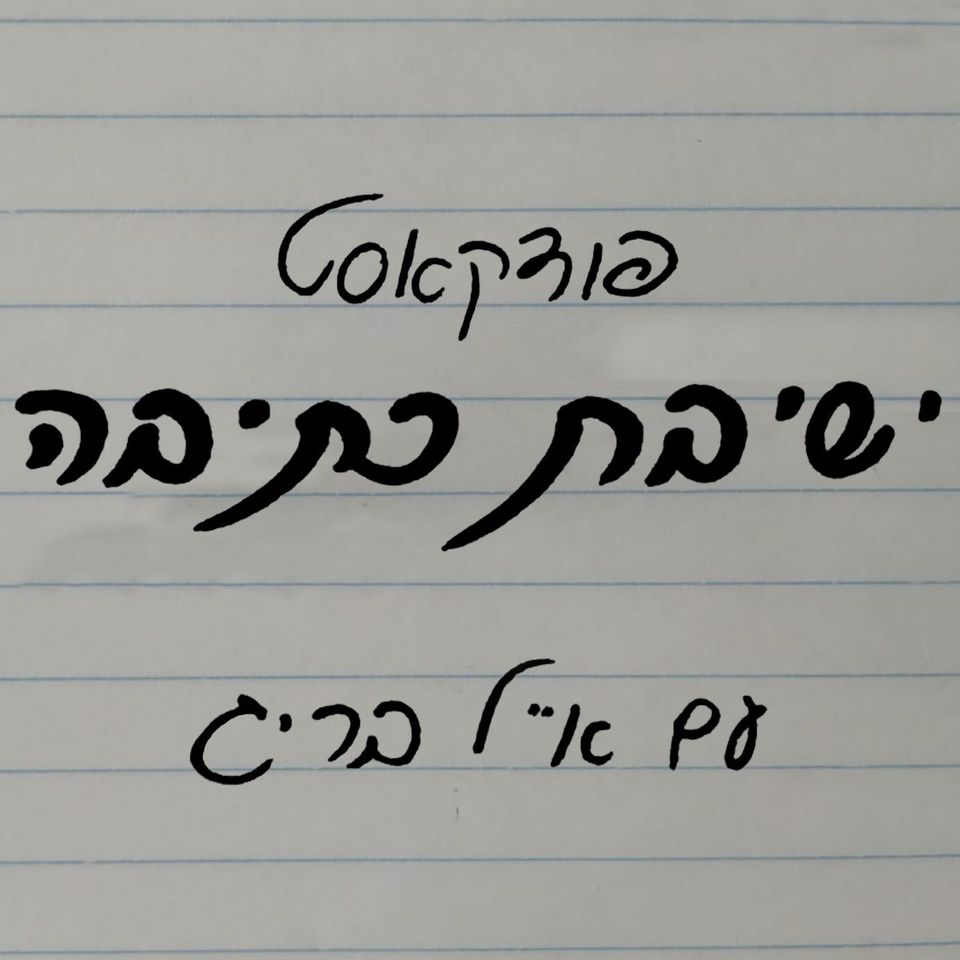 פודקאסט
ישיבת כתיבה
עם אייל בריג